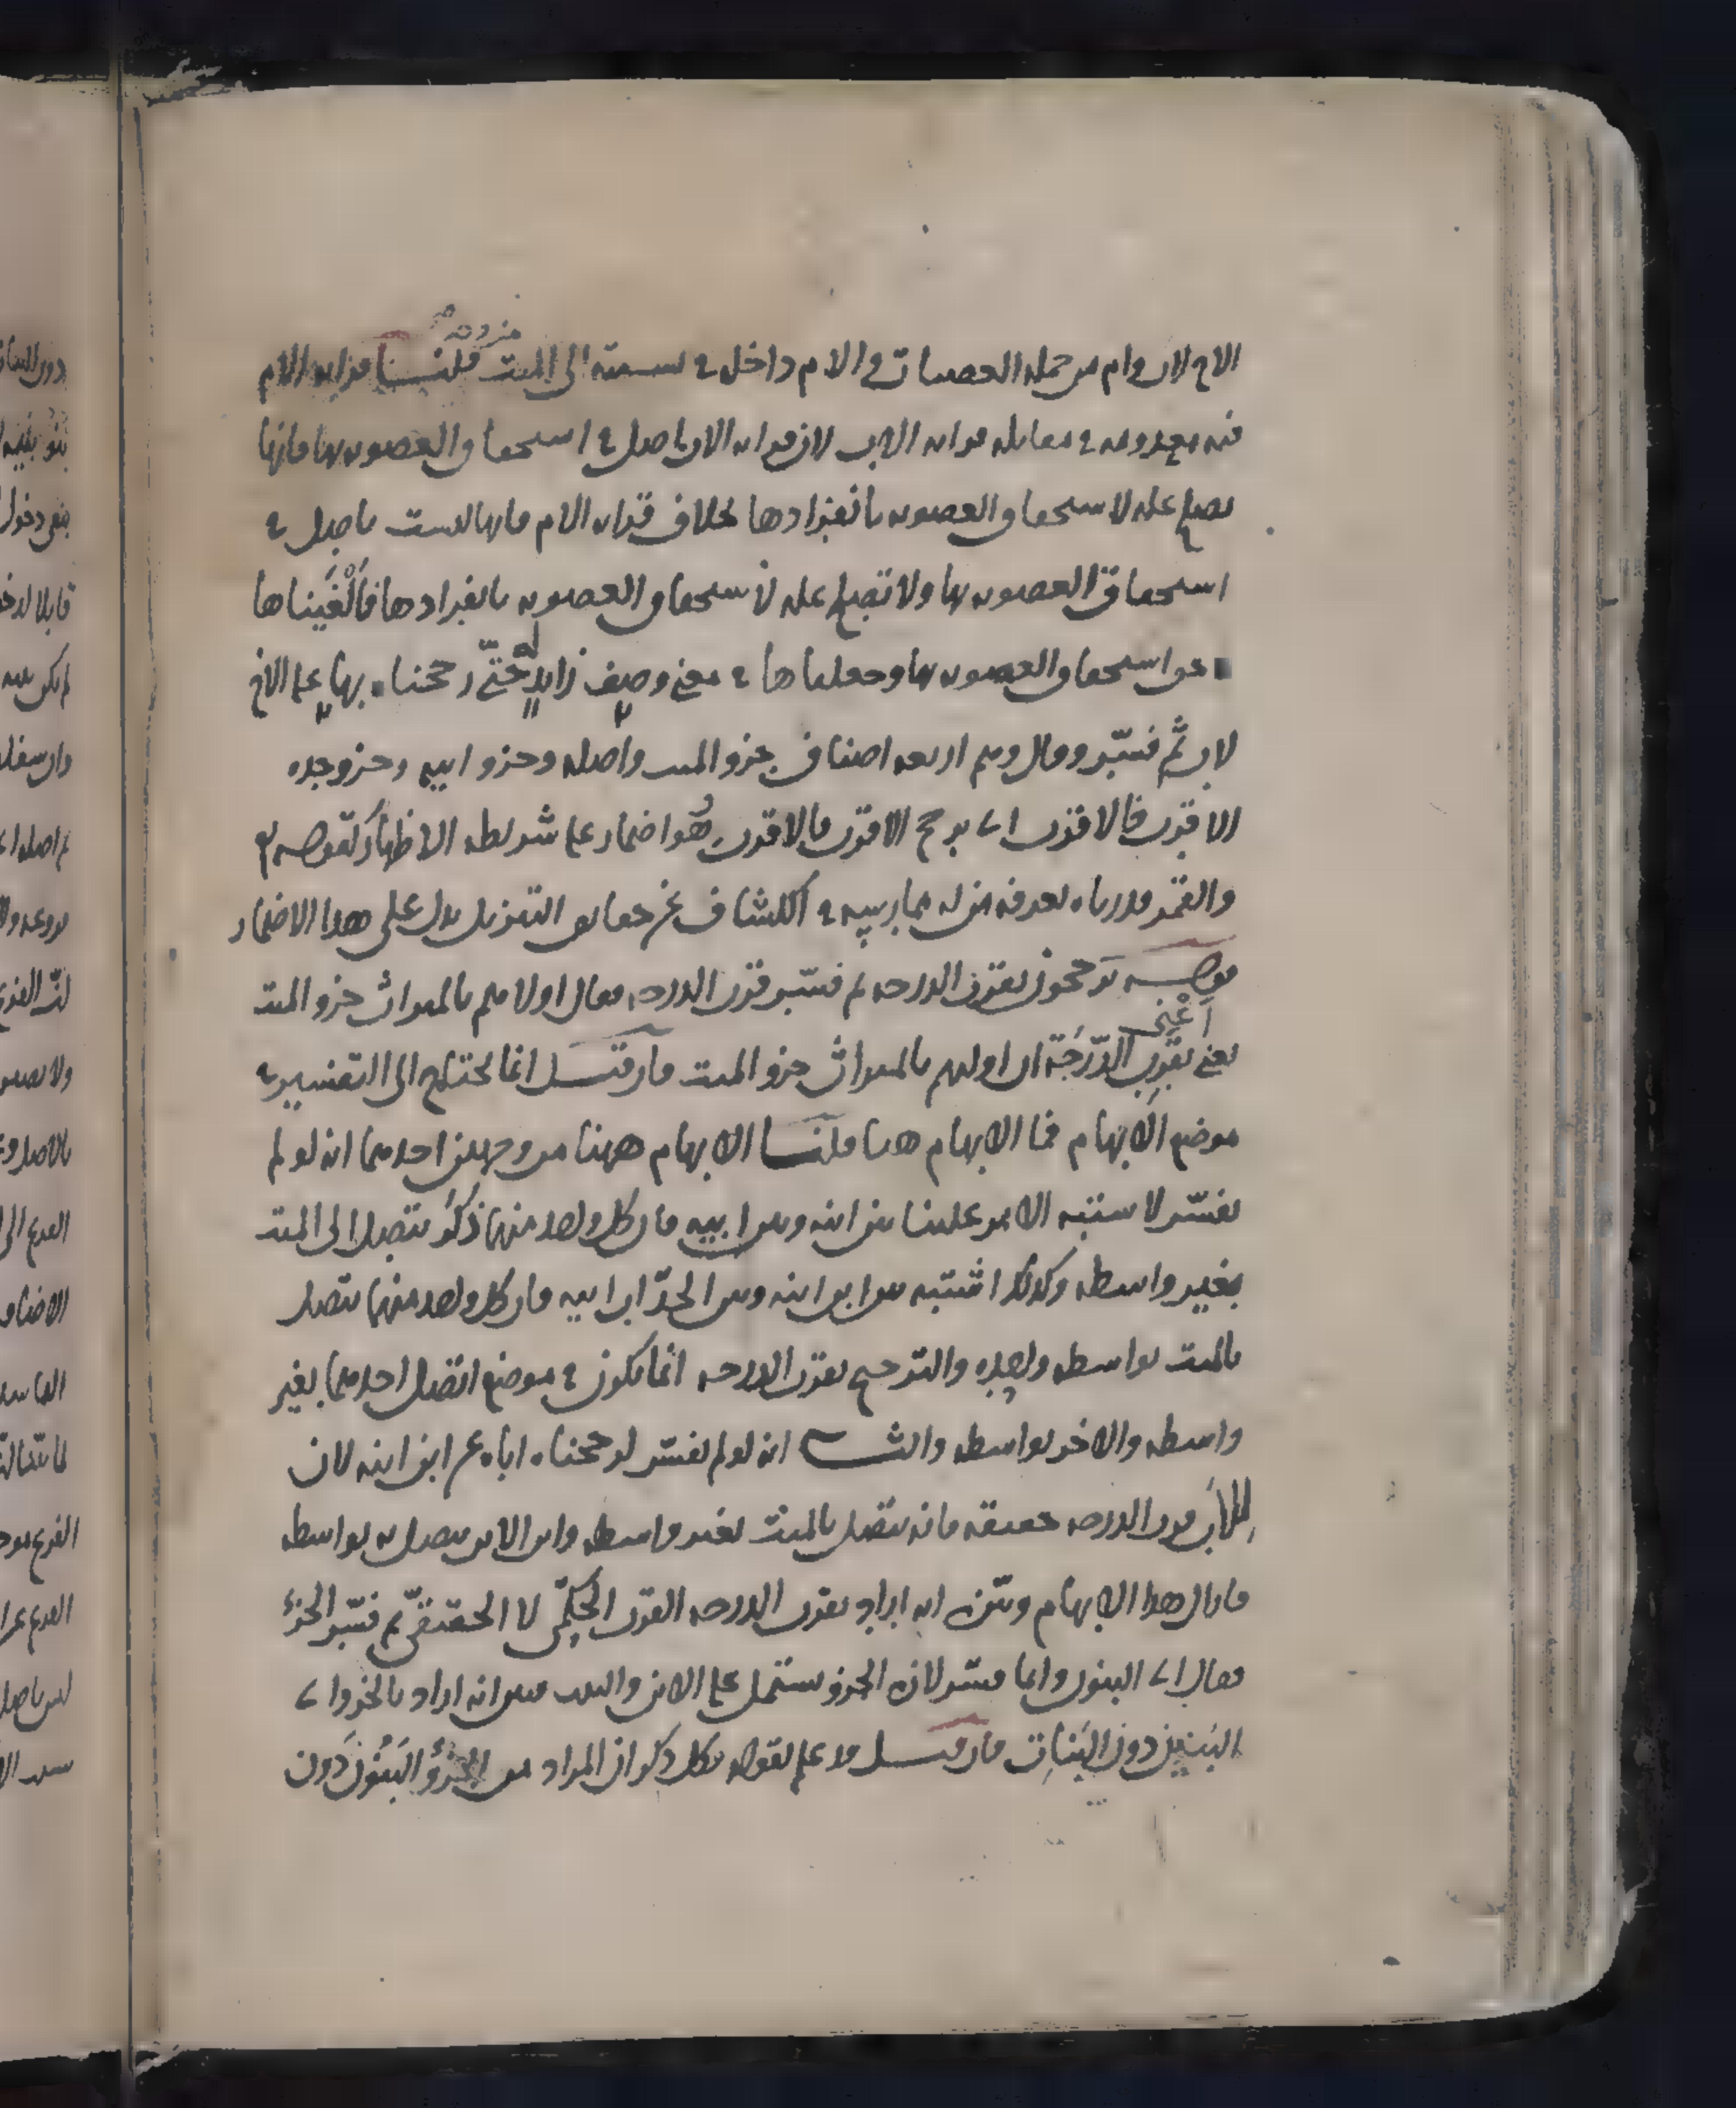 الاخ لاب وام من جملة العصبات والام داخل في نسبته الى الميت قلنا قرابة الام
فيه معدومة في مقابلة قرابة الاب لان قرابة الاب اصل في استحقاق العصوبة بها فانها
تصلح علة لاستحقاق العصوبة بانفرادها بخلاف قرابة الام فانها ليست باصل في
استحقاق العصوبة بها ولا تصلح علة لاستحقاق العصوبة بانفرادها فألغيناها
عن استحقاق العصوبة بها وجعلناها في معنى وصف زايد له حتى رجحناه بها على الاخ
لاب ثم فسّر وقال وهم اربعة اصناف جزو الميت واصله وجزو ابيه وجزو جده
الاقرب فالاقرب اي يرجح الاقرب فالاقرب وهو اضمار على شريطة الاظهار كقوله تع
والقمر قدرناه يعرفه من له ممارسة في الكشاف عن حقايق التنزيل يدل على هذا الاضمار
قوله يرجحون بقرب الدرجة ثم فسّر قرب الدرجة فقال اولاهم بالميراث جزو الميت
يعني بقرب الدّرَجَة ان اولهم بالميراث جزو الميت فان قيل انما يحتاج الى التفسير في
موضع الابهام فما الابهام هنا قلنا الابهام ههنا من وجهين احدهما انه لو لم
يفسّر لاشتبه الامر علينا بين ابنه وبين ابيه فان كل واحد منهما ذكر يتصل الى الميت
بغير واسطة وكذلك اشتبه بين ابن ابنه وبين الجدّ اب ابيه فان كل واحد منهما يتصل
بالميت بواسطة واحدة والترجيح بقرب الدرجة انما يكون في موضع اتصل احدهما بغير
واسطة والاخر بواسطة والثاني انه لو لم يفسّر لرجحناه اباه على ابن ابنه لان
للاب قرب الدرجة حقيقة فانه يتصل بالميت بغير واسطة وابن الابن يتصل به بواسطة
فازال هذا الابهام وبيّن انه اراد بقرب الدرجة القرب الحكمّي لا الحقيقيّ ثم فسّر الجزؤ
فقال اي البنون وانما فسّر لان الجزو يشتمل على الابن والبنت فبين انه اراد بالجزو اي
البنين دون البنات فان قيل قد علم بقوله كل ذكر ان المراد من الجزؤ البنون دون